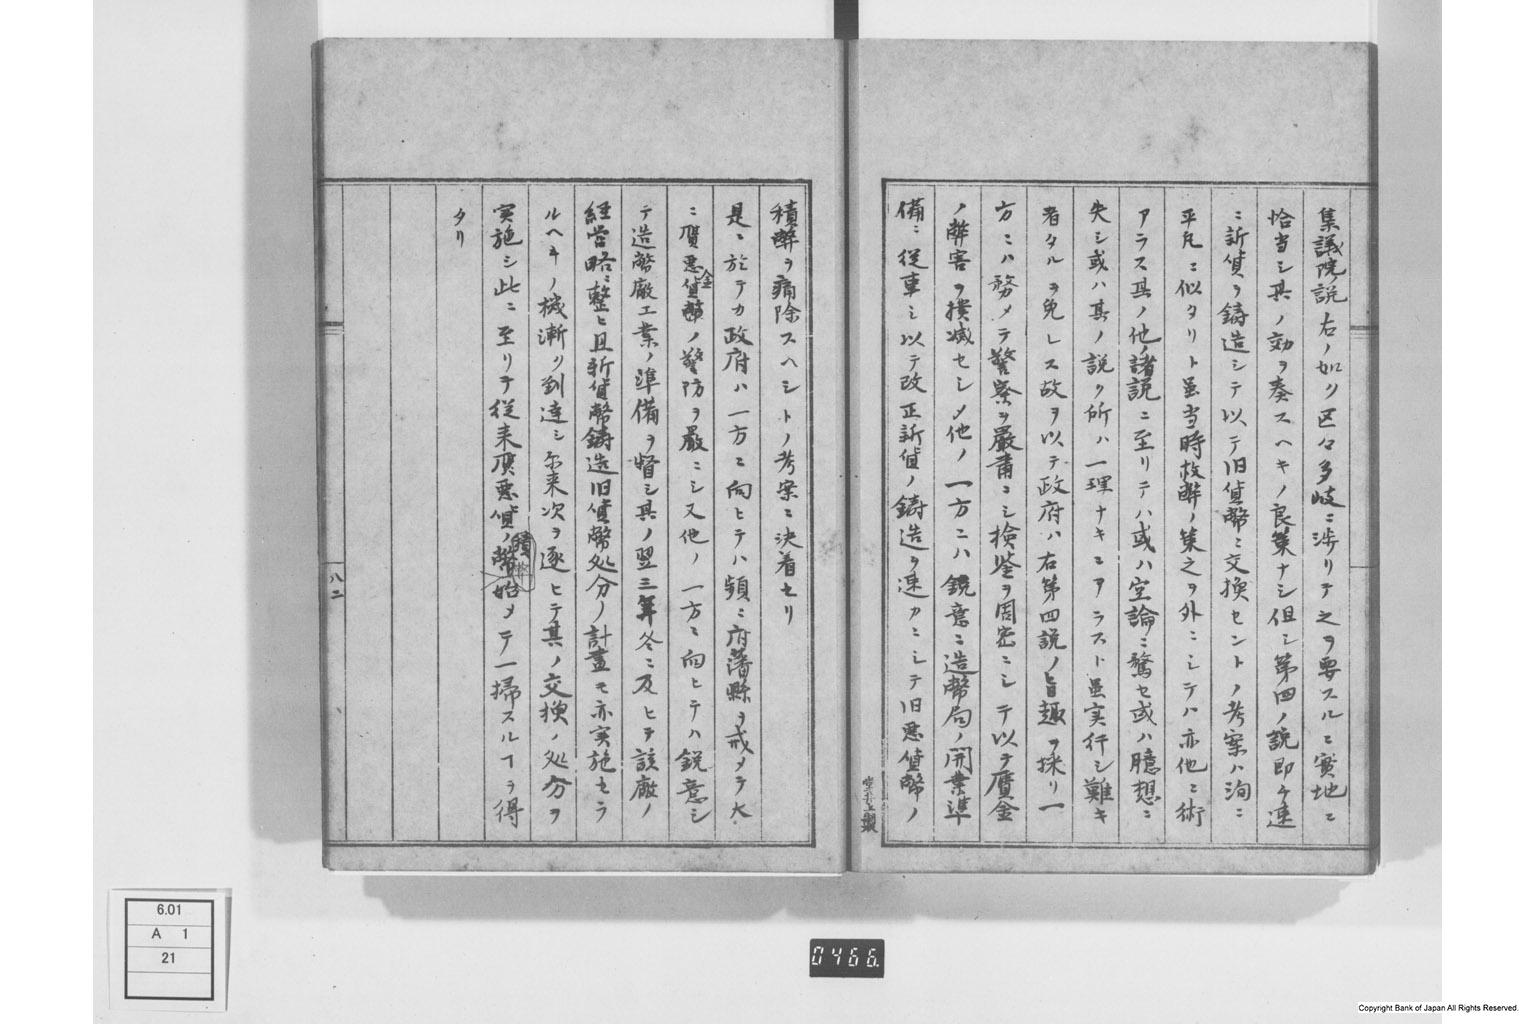 集議院説右ノ如ク区々多岐ニ渉リテ之ヲ要スルニ實地ニ
恰当シ其ノ効ヲ奏スヘキノ良策ナシ但シ第四ノ説即ケ速
ニ新貨ヲ鋳造シテ以テ旧貨幣ニ交換セントノ考案ハ洵ニ
平凡ニ似タリト虽当時救弊ノ策之ヲ外ニシテハ亦他ニ術
アラス其ノ他ノ諸説ニ至リテハ或ハ空論ニ驚セ或ハ臆想ニ
失シ或ハ其ノ説ク所ハ一理ナキニアラスト虽実行シ難キ
者タルヲ免レス故ヲ以テ政府ハ右第四説ノ旨趣ヲ採リ一
方ニハ務メテ警察ヲ厳粛ニシ検鑒ヲ周密ニシテ以テ贋金
ノ弊害ヲ撲滅セシメ他ノ一方ニハ鋭意ニ造幣局ノ開業準
備ニ従事シ以テ改正新貨ノ鋳造ヲ速カニシテ旧悪貨幣ノ
積弊ヲ痛除スヘシトノ考案ニ決着セリ
是ニ於テカ政府ハ一方ニ向ヒテハ頻ニ府藩縣ヲ戒メテ大
ニ贋悪金貨幣ノ警防ヲ厳ニシ又他ノ一方ニ向ヒテハ鋭意シ
テ造幣廠工業ノ準備ヲ督シ其ノ翌三年冬ニ及ヒテ該廠ノ
経営略ニ整ヒ且新貨幣鋳造旧貨幣処分ノ計畫モ亦実施セラ
ルヘキノ機漸ク到達シ尓来次ヲ逐ヒテ其ノ交換ノ処分ヲ
実施シ此ニ至リテ従来贋悪貨ノ積弊始メテ一掃スルヿヲ得
タリ
八二
6.01
A 1
21
0466
Copyright Bank of Japan All Rights Reserved.